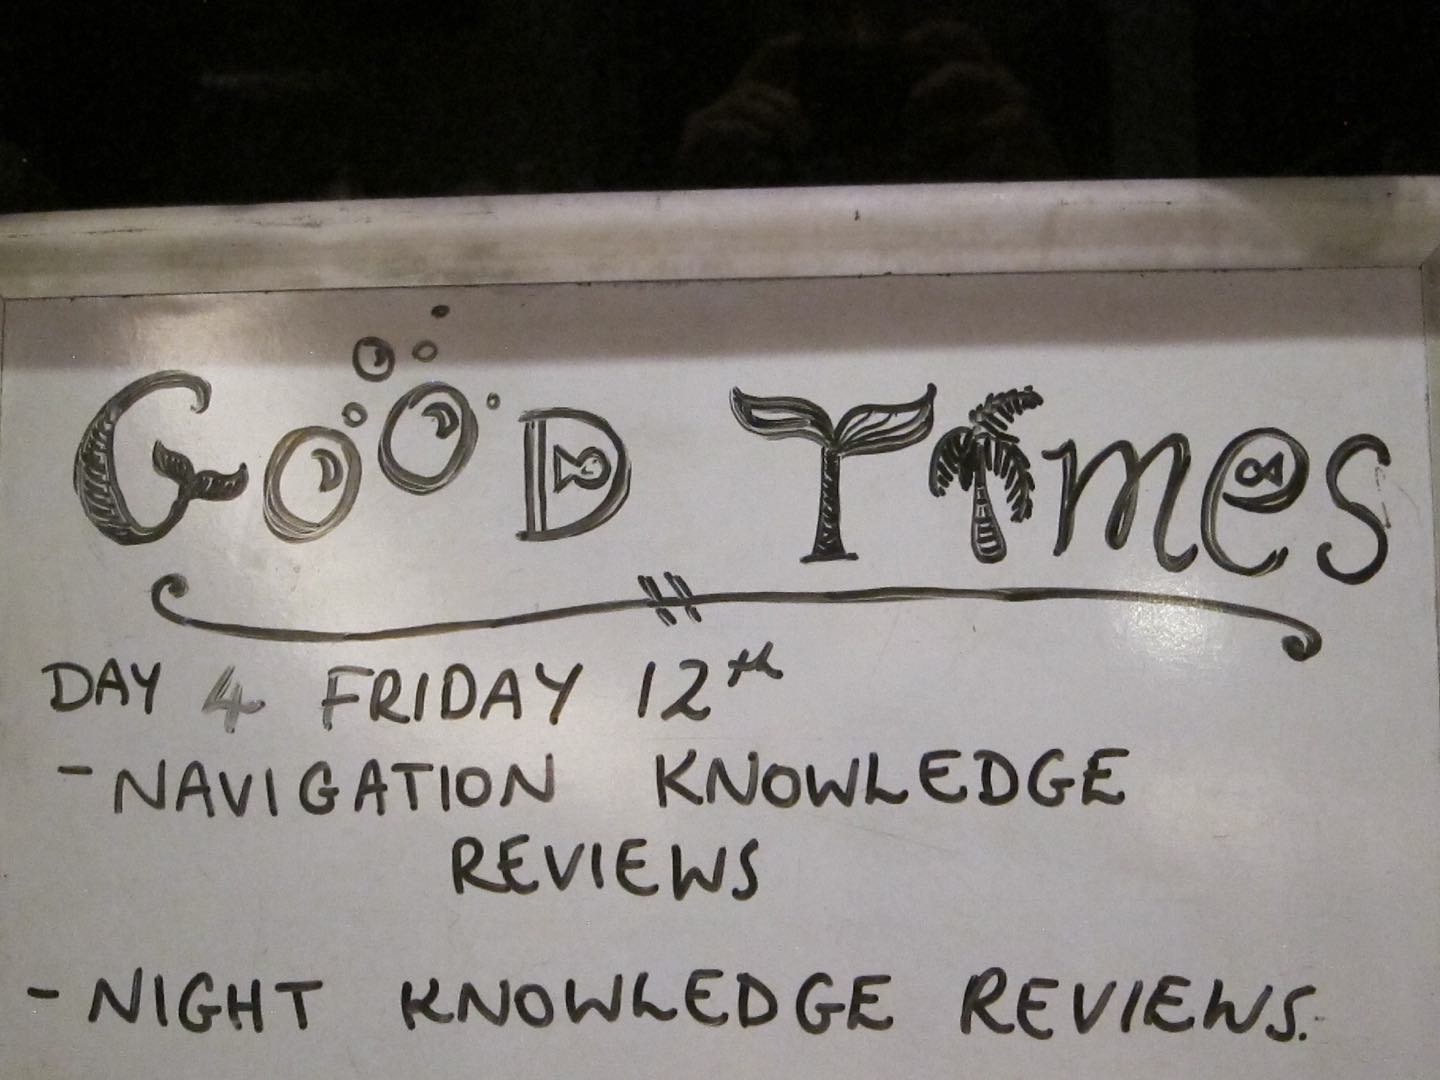 GOOD TimeS
DAY 4 FRIDAY 12th
- NAVIGATION KNOWLEDGE
REVIEWS
- NIGHT KNOWLEDGE REVIEWS.